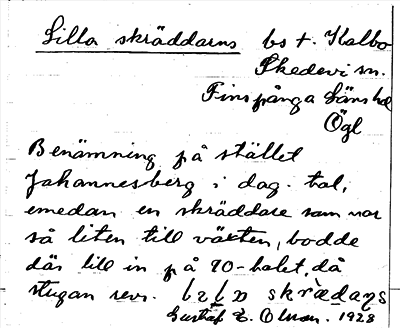 Lilla skräddarns bs t. Kalbo
Skedevi sn.
Finspånga länshd
Ögl
Benämning på stället
Johannesberg i dag. tal,
emedan en skräddare som var
så liten till växten, bodde
där till in på 90-talet, då
stugan revs.
Gustaf E. Olsson. 1928